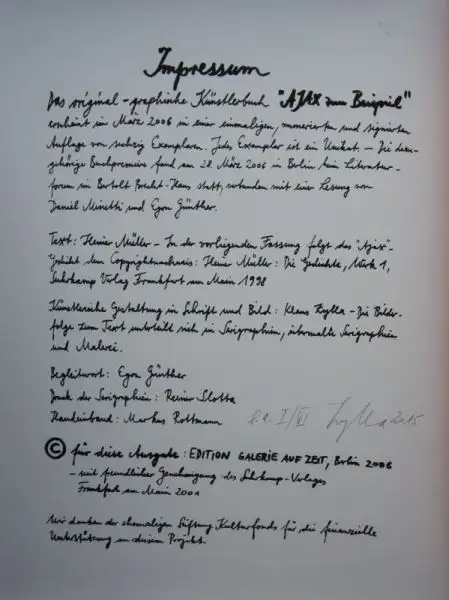 Impressum
Das original-graphische Künstlerbuch "AJAX zum Beispiel"
erscheint im März 2006 in einer einmaligen, numerierten und signierten
Auflage von sechzig Exemplaren. Jedes Exemplar ist ein Unikat. – Die dazu-
gehörige Buchpremiere fand am 28. März 2006 in Berlin beim Literatur-
forum im Bertolt Brecht-Haus statt, verbunden mit eine Lesung von
Daniel Minetti und Egon Günther.
Text: Heiner Müller – In der vorliegenden Fassung folgt das "Ajax"-
Gedicht dem Copyrightnachweis: Heiner Müller: Die Gedichte, Werke 1,
Suhrkamp Verlag Frankfurt am Main 1998
Künstlerische Gestaltung in Schrift und Bild: Klaus Zylla – Die Bilder-
folge zum Text unterteilt sich in Serigraphien, übermalte Serigraphien
und Malerei.
Begleitwort: Egon Günther
Druck der Serigraphien: Reiner Slotta
Handeinband: Markus Rottmann
e.a. I/VI Zylla 2015
© für diese Ausgabe: EDITION GALERIE AUF ZEIT, Berlin 2006
– mit freundlicher Genehmigung des Suhrkamp-Verlages
Frankfurt am Main 2001
Wir danken der ehemaligen Stiftung Kulturfonds für die finanzielle
Unterstützung an diesem Projekt.